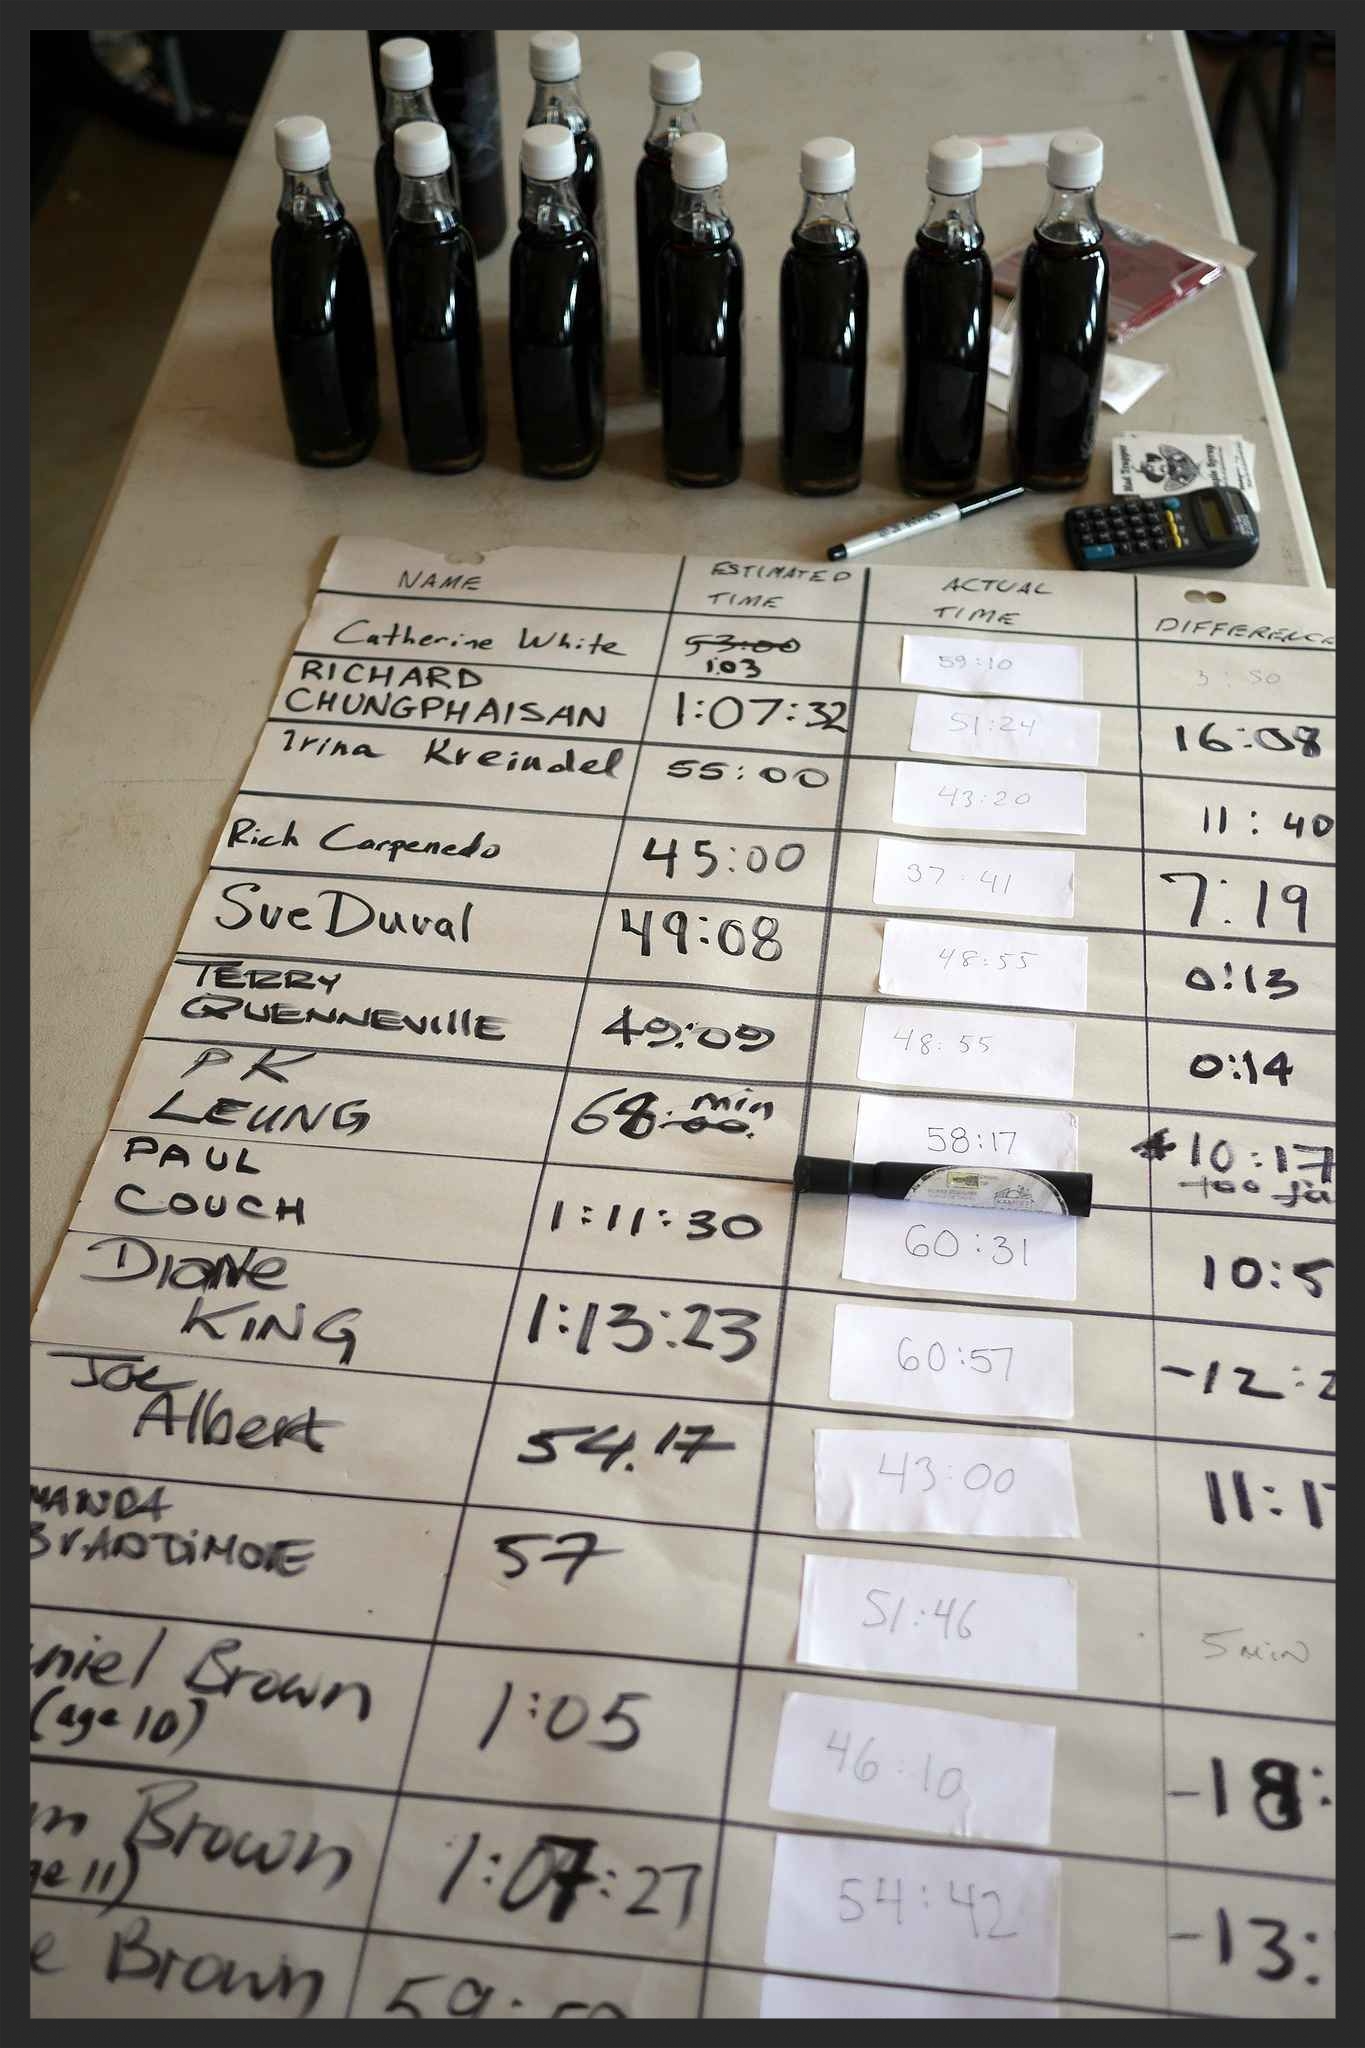 Mad Trapper
Maple Syrup
NAME ESTIMATED TIME ACTUAL TIME DIFFERENCE
Catherine White 53:00 1:03 59:10 3:50
RICHARD CHUNGPHAISAN 1:07:32 51:24 16:08
Irina Kreindel 55:00 43:20 11:40
Rich Carpenedo 45:00 37:41 7:19
Sue Duval 49:08 48:55 0:13
TERRY QUENNEVIllE 49:09 48:55 0:14
PK LEUNG 68:00 min 58:17 10:17 too
PAUL COUCH 1:11:30 60:31 10:5
Diane KING 1:13:23 60:57 -12:2
Joe Albert 54.17 43:00 11:17
57 51:46 5 MIN
niel Brown (age 10) 1:05 46:10 -18:
Brown ge 11) 1:07:27 54:42 -13:
e Brown 59: